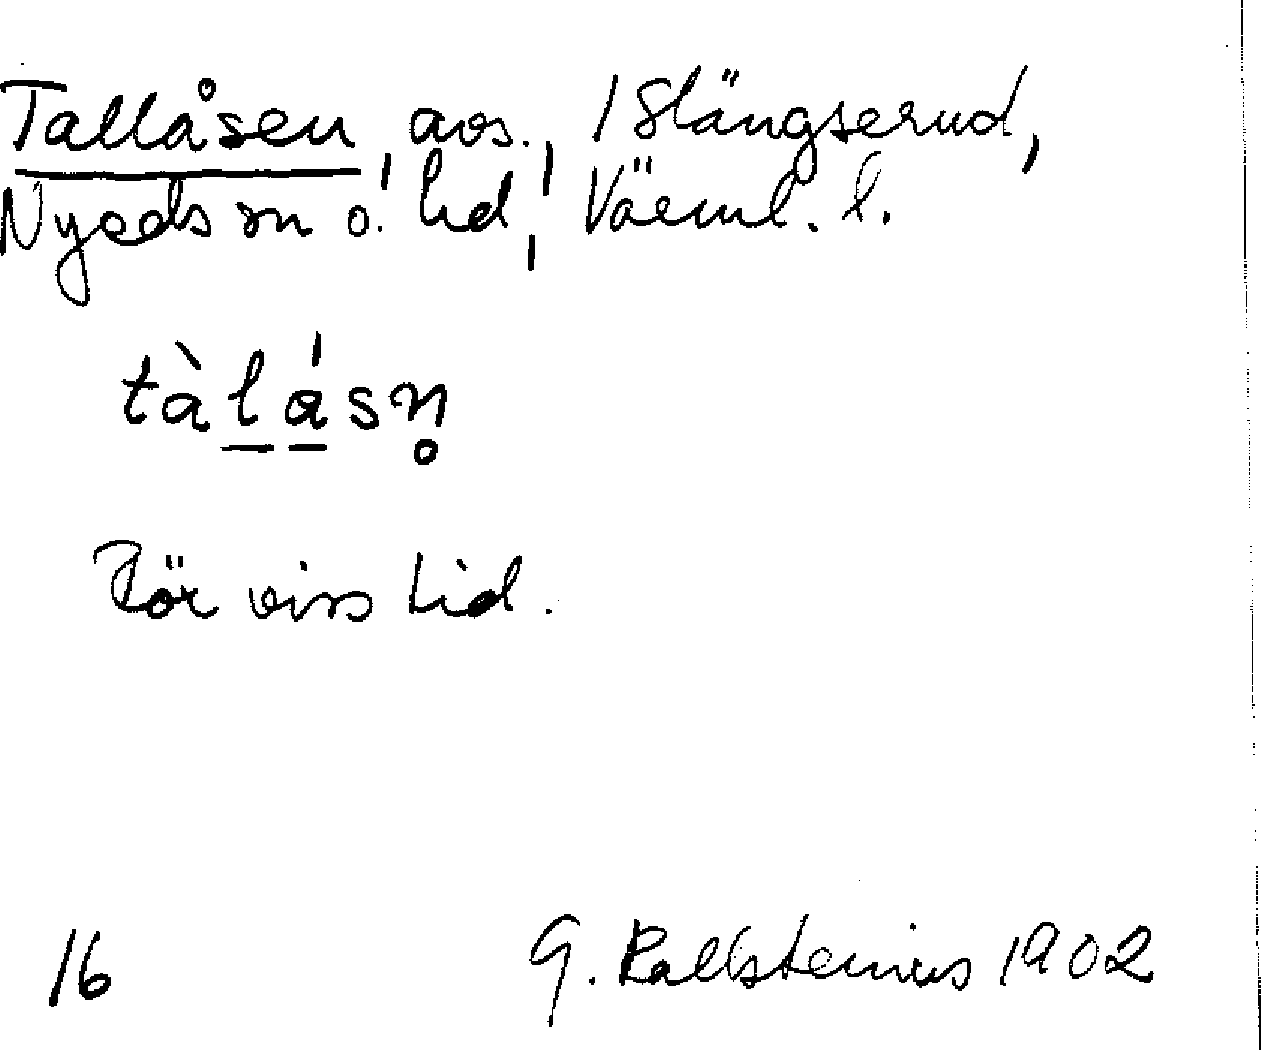 Tallåsen, avs., 1 Slängserud,
Nyeds sn o. hd, Värml. l.
tàlásn̥
För viss tid.
16 G. Kallstenius 1902